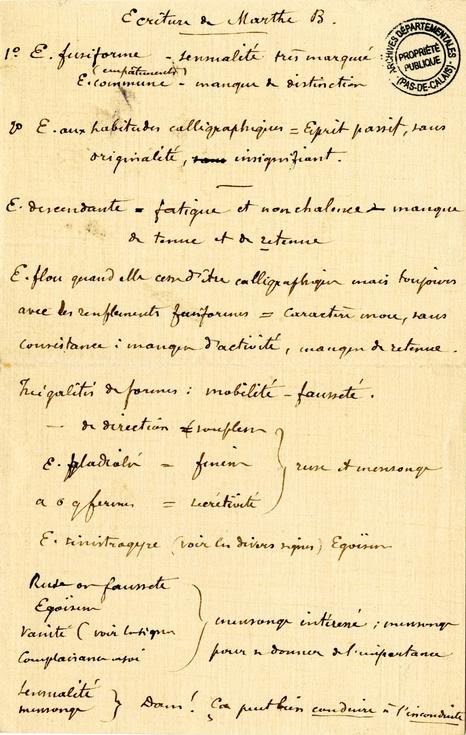 Ecriture de Marthe B.
ARCHIVES DÉPARTEMENTALES
PROPRIÉTÉ
PUBLIQUE
(PAS-DE-CALAIS)
1º E. fusiforme - sensualité très marquée
(empâtements)
E. commune - manque de distinction
2º E. aux habitudes calligraphiques = Esprit passif, sans
originalité, insignifiant.
E. descendante = fatigue et nonchalence - manque
de tenue et de retenue
E. flou quand elle cesse d'être calligraphique mais toujours
avec les renflements fusiformes = caractère mou, sans
consistance : manque d'activité, manque de retenue.
Inégalités de formes : mobilité - fausseté.
- de direction = souplesse
E. gladiolée = finesse
a o g fermés = secrétivité
ruse et mensonge
E. sinistrogyre (voir les divers signes) Egoïsme
Ruse ou fausseté
Egoïsme
Vanité (voir les signes
Complaisance
mensonge intéressé ; mensonge
pour se donner de l'importance
Sensualité
mensonge
Dam! Ça peut bien conduire à l'inconduite